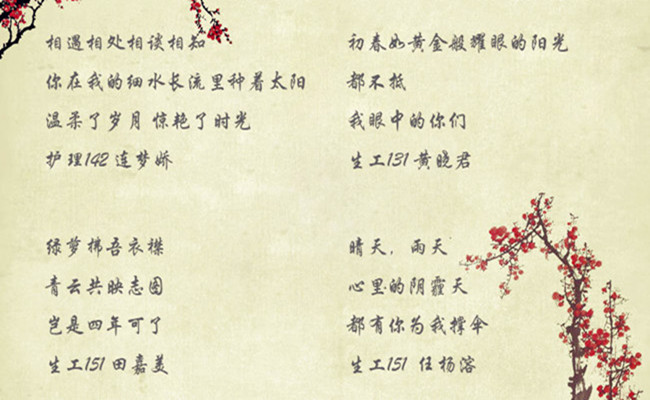 相遇相处相谈相知
你在我的细水长流里种着太阳
温柔了岁月 惊艳了时光
护理142 连梦娇
初春如黄金般耀眼的阳光
都不抵
我眼中的你们
生工131 黄晓君
绿萝拂吾衣襟
青云共映志图
岂是四年可了
生工151 田嘉美
晴天，雨天
心里的阴霾天
都有你为我撑伞
生工151 任杨溶